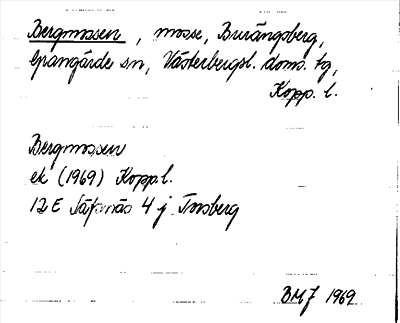 Bergmossen, mosse, Burängsberg,
Grangärde sn, Västerbergsl. doms. tg,
Kopp. l.
Bergmossen
ek (1969) Kopp.l.
12E Säfsnäs 4 j Torsberg
BMJ 1969